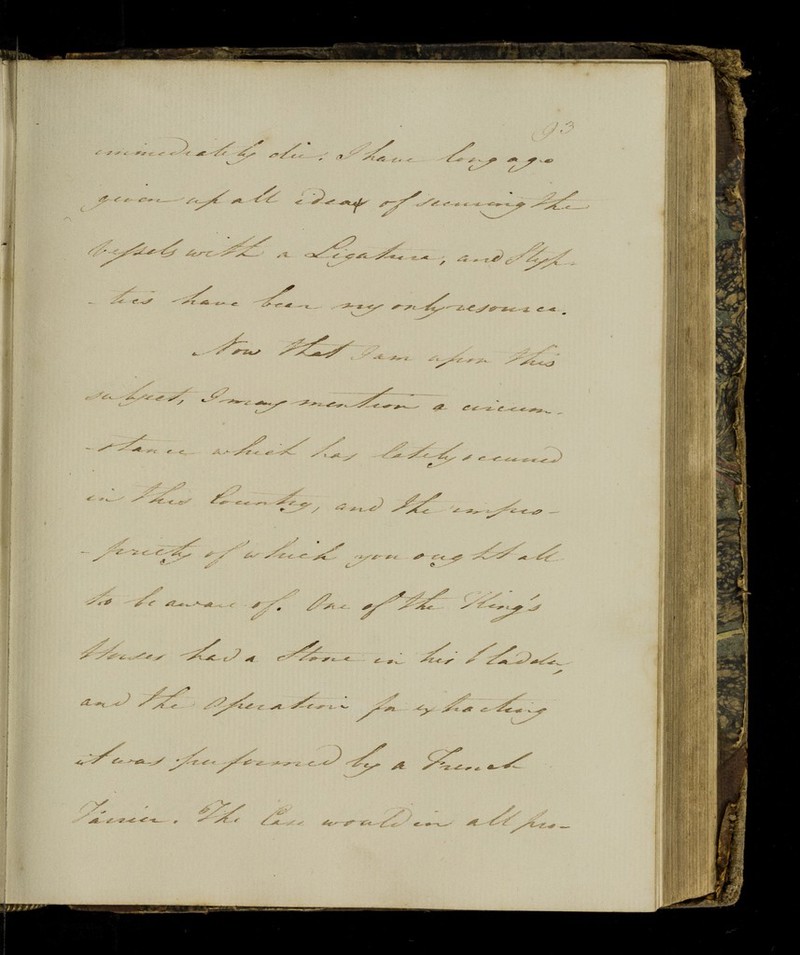 93
immediately die. I have long ago
given up all ideas of securing the
Vessels with a Ligature, and Styp-
-tics have been my only resource.
Now that I am upon this
subject, I may mention a circum-
-stance which has lately occurred
in this Country, and the impro-
-priety of which you ought all
to be aware of. One of the King's
Horses had a Stone in his bladder,
and the Operation for extracting
it was performed by a French
Farrier. The Case would in all pro-